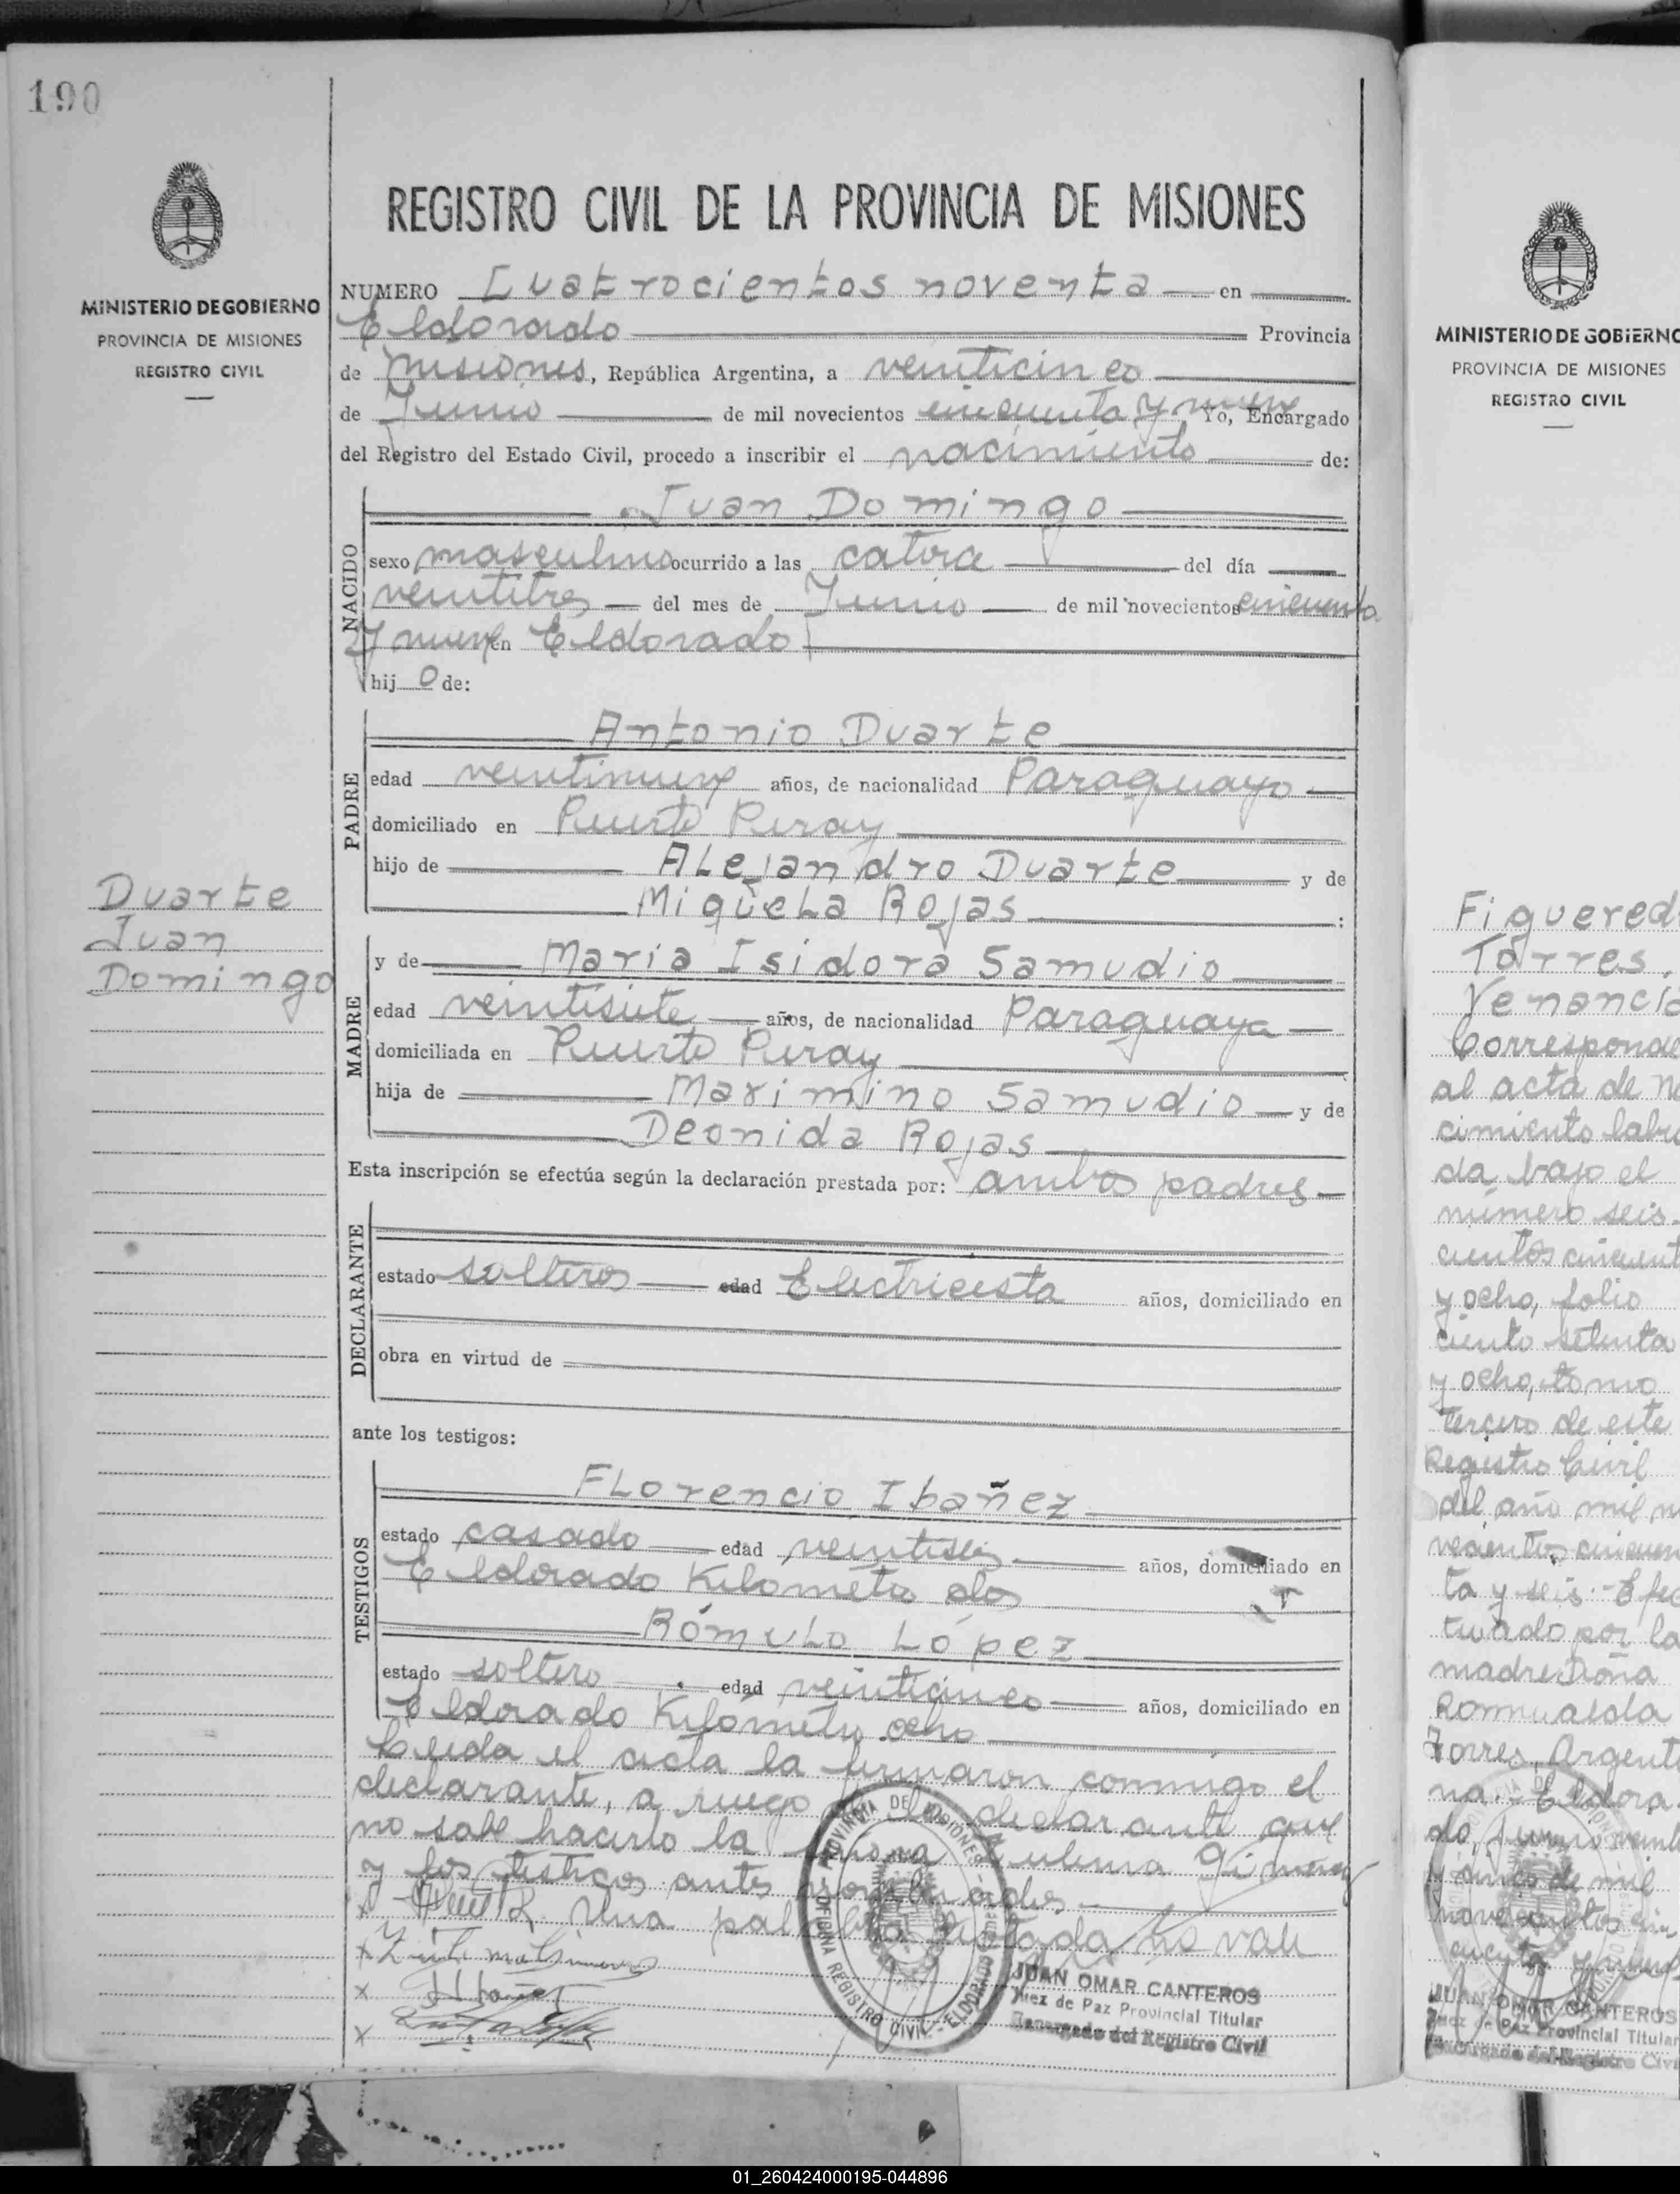 190
MINISTERIO DE GOBIERNO
PROVINCIA DE MISIONES
REGISTRO CIVIL
Duarte
Juan
Domingo
REGISTRO CIVIL DE LA PROVINCIA DE MISIONES
NUMERO Cuatrocientos noventa en
Eldorado Provincia
de Misiones, República Argentina, a veinticinco
de Junio de mil novecientos cincuenta y nueve Yo, Encargado
del Registro del Estado Civil, procedo a inscribir el nacimiento de:
NACIDO
Juan Domingo
sexo masculino ocurrido a las catorce del día
veintitres del mes de Junio de mil novecientos cincuenta
y nueve en Eldorado
hij o de:
PADRE
Antonio Duarte
edad veintinueve años, de nacionalidad Paraguayo
domiciliado en Puerto Piray
hijo de Alejandro Duarte y de
Miguela Rojas :
MADRE
y de Maria Isidora Samudio
edad veintisiete años, de nacionalidad Paraguaya
domiciliada en Puerto Piray
hija de Maximino Samudio y de
Deonida Rojas
Esta inscripción se efectúa según la declaración prestada por: ambos padres
DECLARANTE
estado solteros edad Electricista años, domiciliado en
obra en virtud de
ante los testigos:
TESTIGOS
Florencio Ibañez
estado casado edad veintiseis años, domiciliado en
Eldorado Kilometro dos
Rómulo López
estado soltero edad veinticinco años, domiciliado en
Eldorado Kilómetro ocho
Leida el acta la firmaron conmigo el
declarante, a ruego la declarante que
no sabe hacerlo la Zulema Gimenez
y los testigos antes nombrados
Una palabra testada no vale
PROVINCIA DE MISIONES
OFICINA REGISTRO CIVIL - ELDORADO
JUAN OMAR CANTEROS
Juez de Paz Provincial Titular
Encargado del Registro Civil
MINISTERIO DE GOBIERNO
PROVINCIA DE MISIONES
REGISTRO CIVIL
Figuered
Torres,
Venancio
Corresponde
al acta de na
cimiento labra
da bajo el
número seis-
cientos cincuent
y ocho, folio
ciento setenta
y ocho, tomo
tercero de este
Registro Civil
del año mil no
vecientos cincuen
ta y seis.- Efec
tuado por la
madre Doña
Romualda
Torres, Argenti
na.- Eldora
do, Junio veinti
y cinco de mil
novecientos cin
cuenta y nueve
JUAN OMAR CANTEROS
Juez de Paz Provincial Titular
Encargado del Registro Civil
01_260424000195-044896